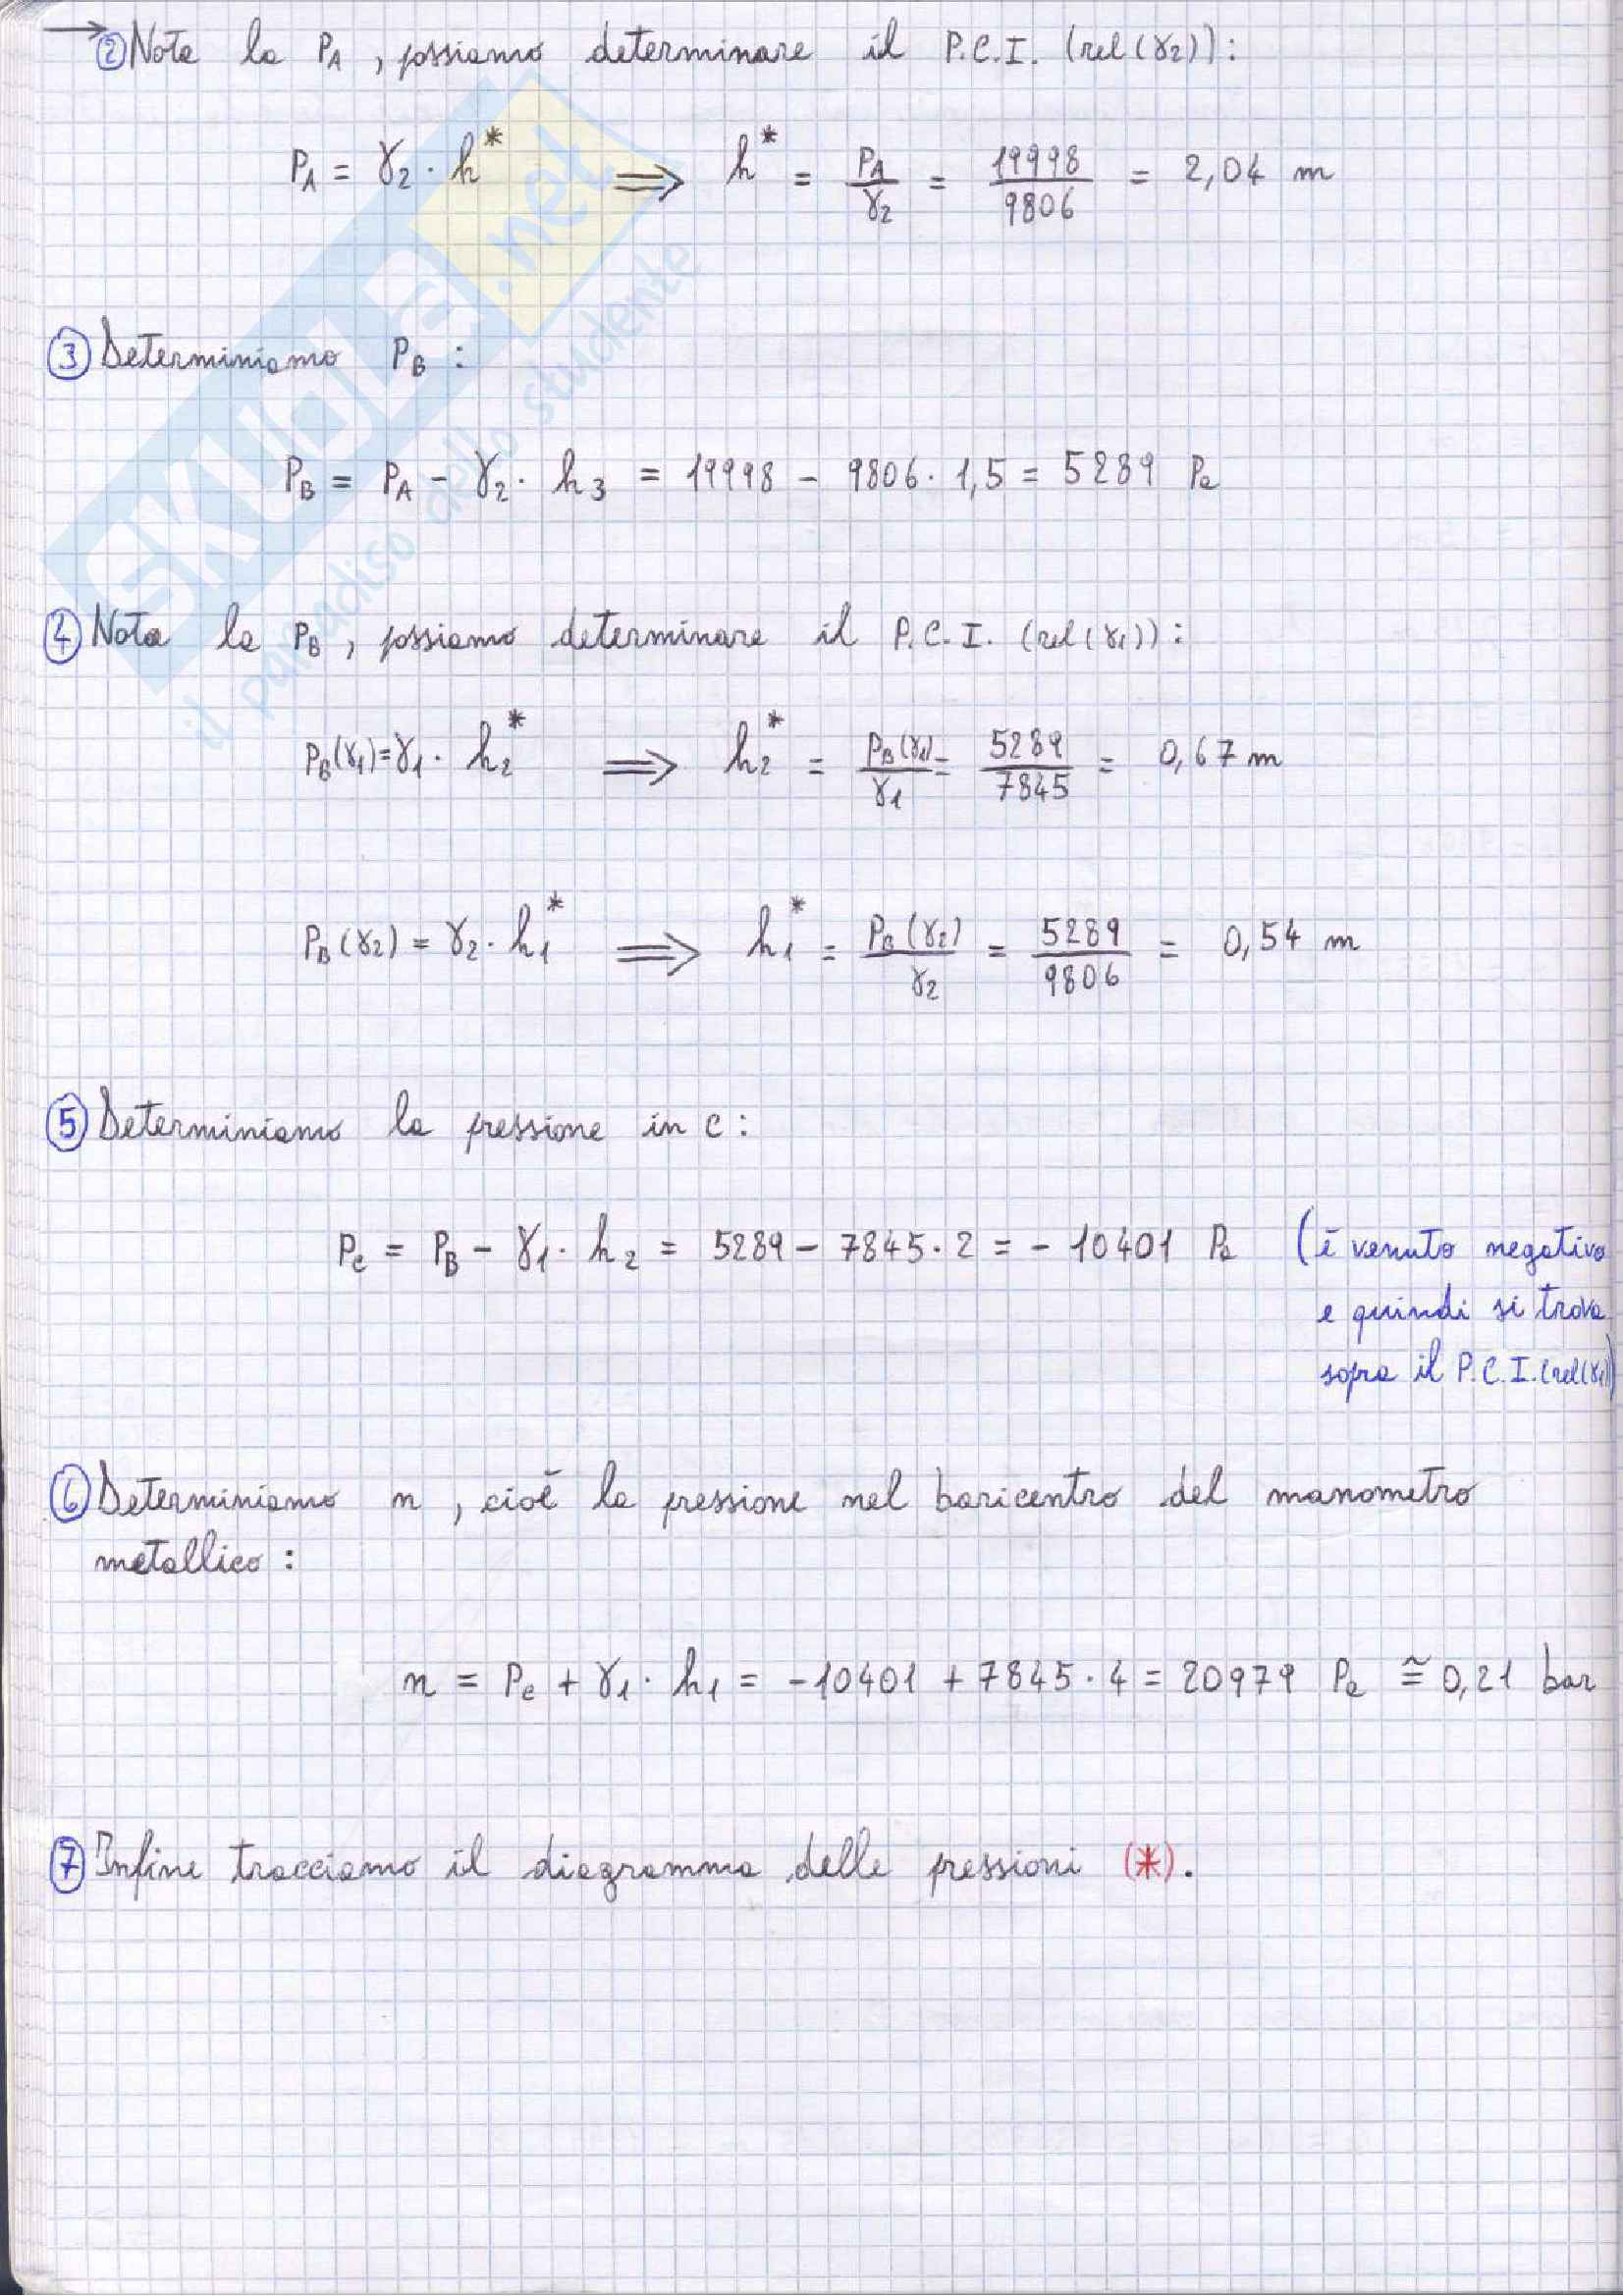 → ② Nota la PA , possiamo determinare il P.C.I. (rel(γ2)):
PA = γ2 · h* ⟹ h* = PA/γ2 = 19998/9806 = 2,04 m
③ Determiniamo PB :
PB = PA - γ2 · h3 = 19998 - 9806 · 1,5 = 5289 Pa
④ Nota la PB , possiamo determinare il P.C.I. (rel(γ1)):
PB(γ1) = γ1 · h2* ⟹ h2* = PB(γ1)/γ1 = 5289/7845 = 0,67 m
PB(γ2) = γ2 · h1* ⟹ h1* = PB(γ2)/γ2 = 5289/9806 = 0,54 m
⑤ Determiniamo la pressione in C :
Pc = PB - γ1 · h2 = 5289 - 7845 · 2 = - 10401 Pa (è venuto negativo
e quindi si trova
sopra il P.C.I. (rel(γ1))
⑥ Determiniamo n , cioè la pressione nel baricentro del manometro
metallico :
n = Pc + γ1 · h1 = -10401 + 7845 · 4 = 20979 Pa ≅ 0,21 bar
⑦ Infine tracciamo il diagramma delle pressioni (*).
SKUOLA.net
il paradiso dello studente